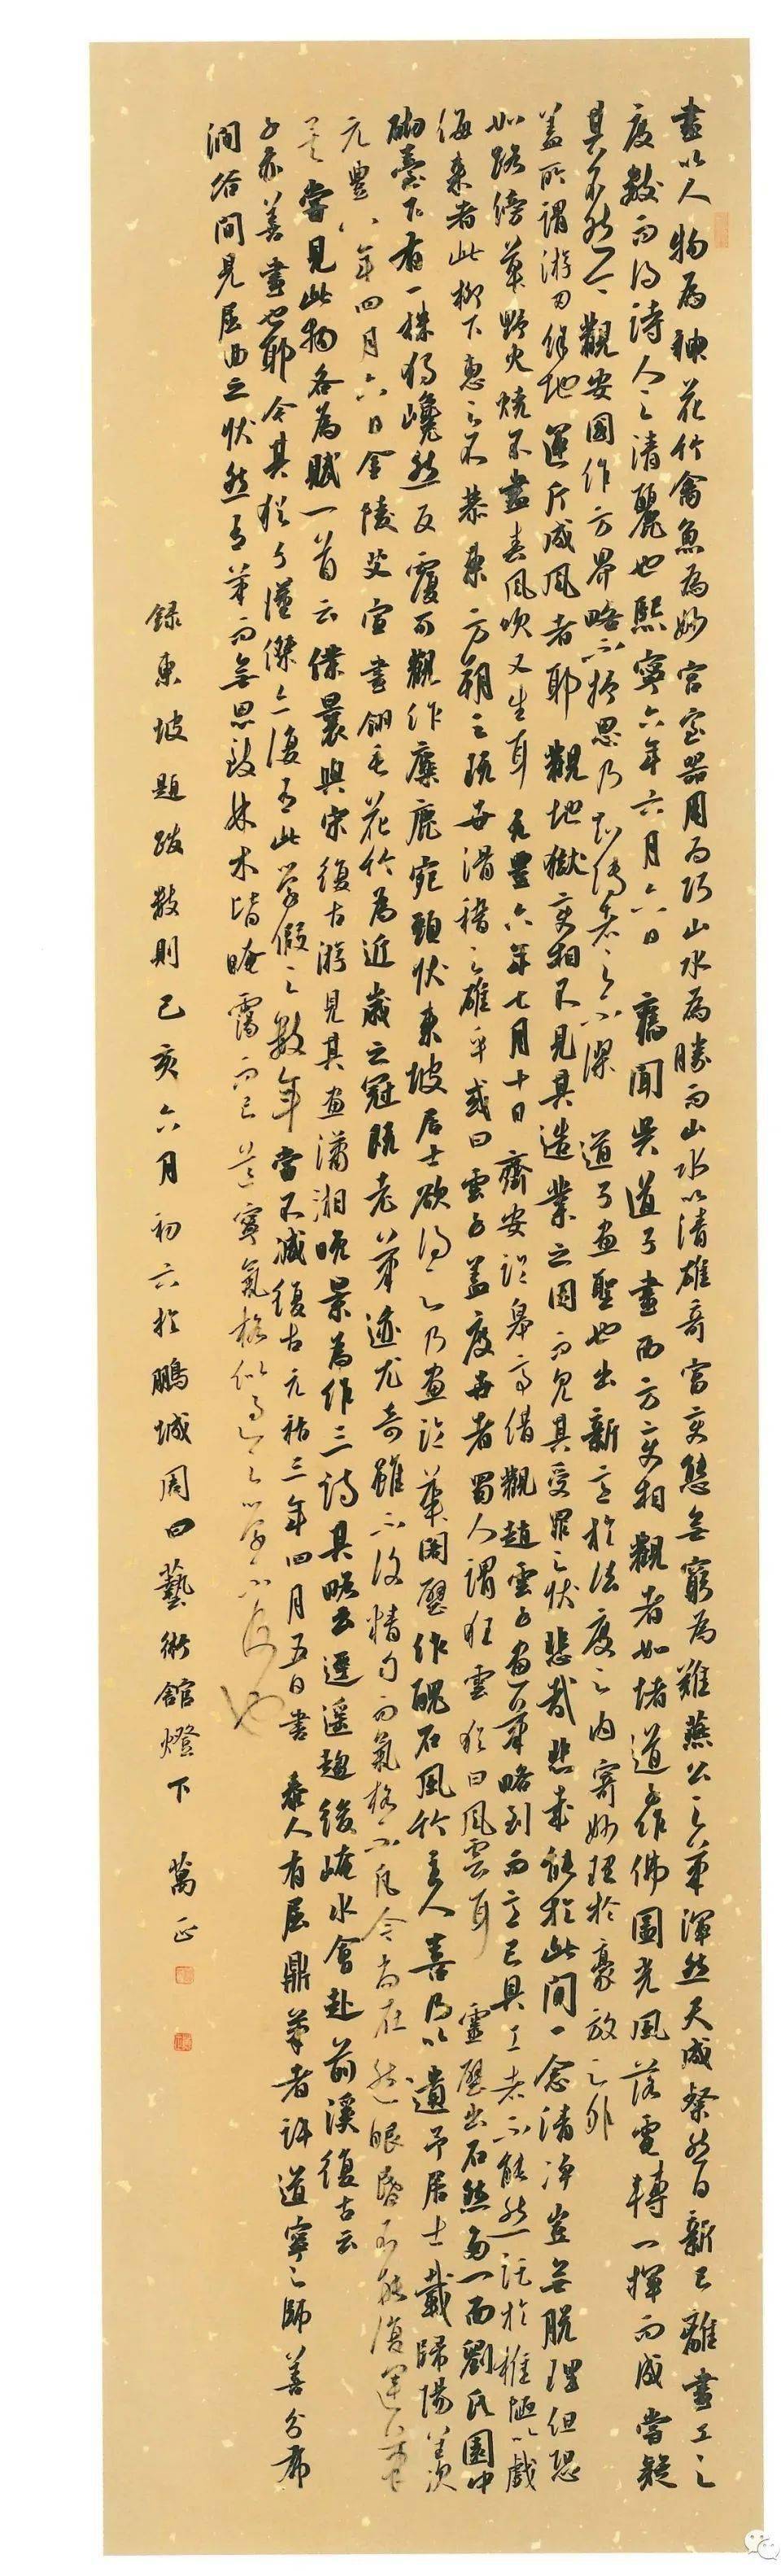 畫以人物為神花竹禽魚為妙宮室器用為巧山水為勝而山水以清雄奇富變態無窮為難燕公之筆渾然天成粲然日新已離畫工之
度數而得詩人之清麗也熙寧六年六月六日 舊聞吳道子畫西方變相觀者如堵道子作佛圓光風落電轉一揮而成嘗疑
其不然今觀安國作方界略不抒思乃知傳者之不謬 道子畫聖也出新意於法度之內寄妙理於豪放之外
蓋所謂游刃餘地運斤成風者耶 觀地獄變相不見其造業之因而見其受罪之狀悲哉悲哉能於此間一念清淨豈無脫理但恐
如路傍草野火燒不盡春風吹又生耳 元豐六年七月十日齊安臨皋亭借觀 趙雲子畫筆略到而意已具工者不能然託於椎陋以戲
侮來者此柳下惠之不恭東方朔之玩世滑稽之雄乎或曰雲子蓋度世者蜀人謂狂雲猶曰風雲耳 靈壁出石然多一面劉氏園中
砌臺下有一株獨巉然反覆可觀作麋鹿宛頸狀東坡居士欲得之乃畫臨華閣壁作醜石風竹主人喜乃以遺予居士載歸陽羨
元豐八年四月六日 金陵艾宣畫翎毛花竹為近歲之冠既老筆迹尤奇雖不復精勻而氣格不凡今尚在然眼昏不能復運筆
矣嘗見此物各為賦一首云 僕曩與宋復古游見其畫瀟湘晚景為作三詩其略云逕遙趨後崦水會赴前溪復古云
子亦善畫也耶今其猶子漢傑亦復有此學假之數年當不減復古元祐三年四月五日書 人有屈鼎筆者許道寧之師善分布
澗谷間見屈曲之狀然有筆而無思致林木皆晻靄而已道寧氣格似過之學不及也
錄東坡題跋數則己亥六月初六於鵬城周四藝術館燈下 萬正